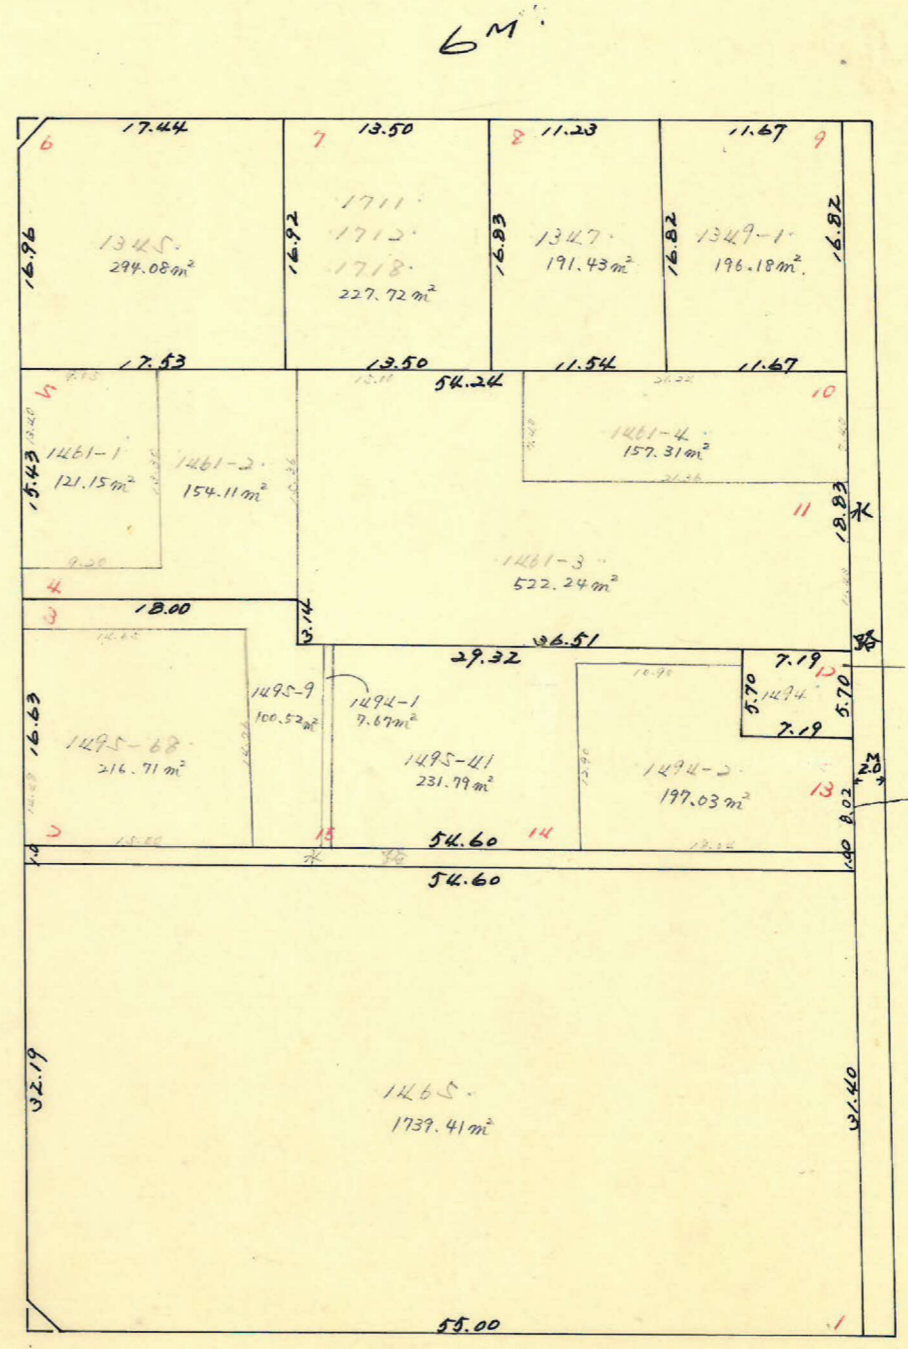 6M
17.44
13.50
11.23
11.67
6
7
8
9
16.96
16.92
16.83
16.82
16.82
1345
294.08m²
1711
1712
1718
227.72m²
1347
191.43m²
1349-1
196.18m²
17.53
13.50
11.54
11.67
54.24
5
10
15.43
1461-1
121.15m²
1461-2
154.11m²
1461-4
157.31m²
21.36
11
18.83
水
1461-3
522.24m²
9.20
4
3
18.00
3.14
36.51
路
29.32
7.19
12
14.65
10.90
5.70
1494
5.70
7.19
1495-9
100.52m²
1494-1
7.67m²
16.63
1495-68
216.71m²
1495-41
231.79m²
12.90
1494-2
197.03m²
2.3
13
8.02
2
15.00
15
14
54.60
18.04
1.0
水路
1.00
54.60
32.19
31.40
1465
1739.41m²
55.00
1